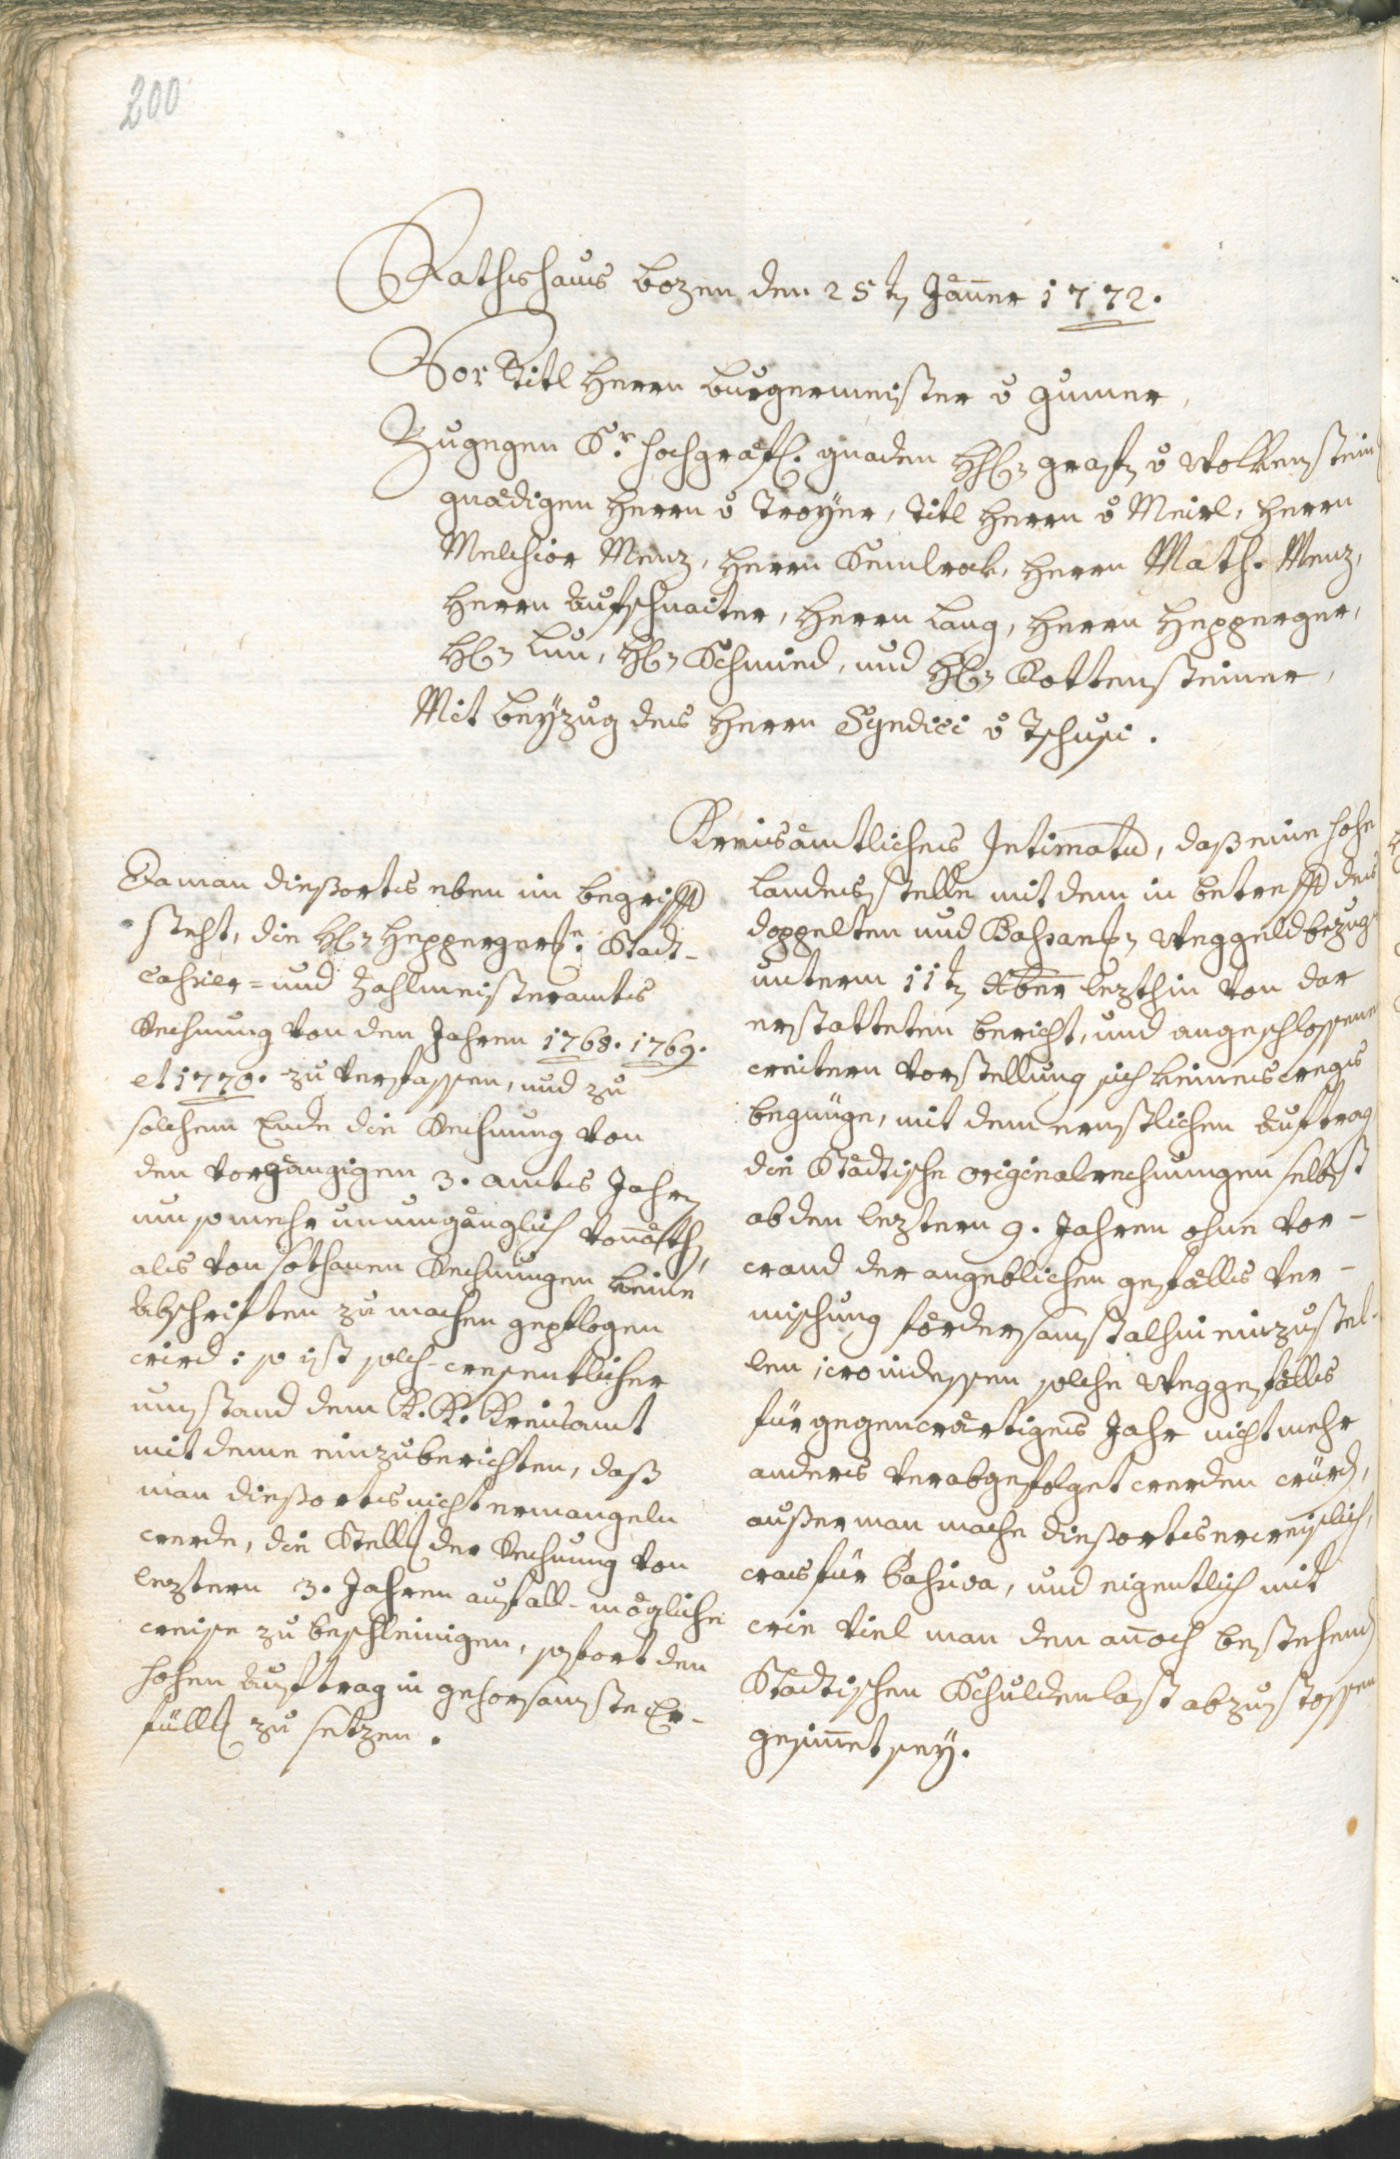 200
Rathshaus Bozen den 25tn Jäner 1772.
Vor Titl Herrn Burgermeister v Gumer,
Zugegen Sr hochgräfl. gnaden HHrn grafn v Wolkenstein
gnädigen Herrn v Troyer, Titl Herrn v Meirl, Herrn
Melchior Menz, Herrn Semlrock, Herrn Math. Menz,
Herrn Aufschnaiter, Herrn Lang, Herrn Hepperger,
Hrn Lun, Hrn Schmied, und Hrn Rottensteiner,
Mit beyzug des Herrn Syndici v Tschusi.
Da man dießorts eben im begriff
steht, die Hrn Heppergerse: Stadt-
Cahsier= und Zahlmeisteramts
Rechnung von den Jahren 1768. 1769.
et 1770. zu verfassen, und zu
solchem Ende die Rechnung von
den vorgängigen 3. amts Jahrn
um so mehr unumgänglich vonöthn,
als von sothanen Rechnungen keine
Abschriften zu machen gepflogen
wird: so ist solch-wesentlicher
umstand dem K. K. Kreisamt
mit deme einzuberichten, daß
man dießorts nicht ermangeln
werde, die Stellung der Rechnung von
leztern 3. Jahren auf all-mögliche
weise zu beschleinigen, sofort den
hohen Auftrag in gehorsamste Er-
füllung zu setzen.
Kreisämtliches Intimatum, daß eine hohe
Landesstelle mit dem in betreff des
doppelten und Bahsanln Weggeldbezugs
unterm 11tn Xber lezthin von dar
erstatteten bericht, und angeschlossene
weitern Vorstellung sich keineswegs
begnüge, mit dem ernstlichen Auftrag
die Städtische originalrechnungen selbst
ab den leztern 9. Jahren ohne Vor-
wand der angeblichen gefälls Ver-
mischung fördersamst alhin einzustel-
len, wo indessen solche Weggefälls
für gegenwärtiges Jahr nicht mehr
anders verabgefolget werden würdn,
außer man mache dießorts erweislich,
was für Pahsiva, und eigentlich mit
wie viel man den anoch bestehendn
Städtischen Schuldenlast abzustossen
gesinet sey.